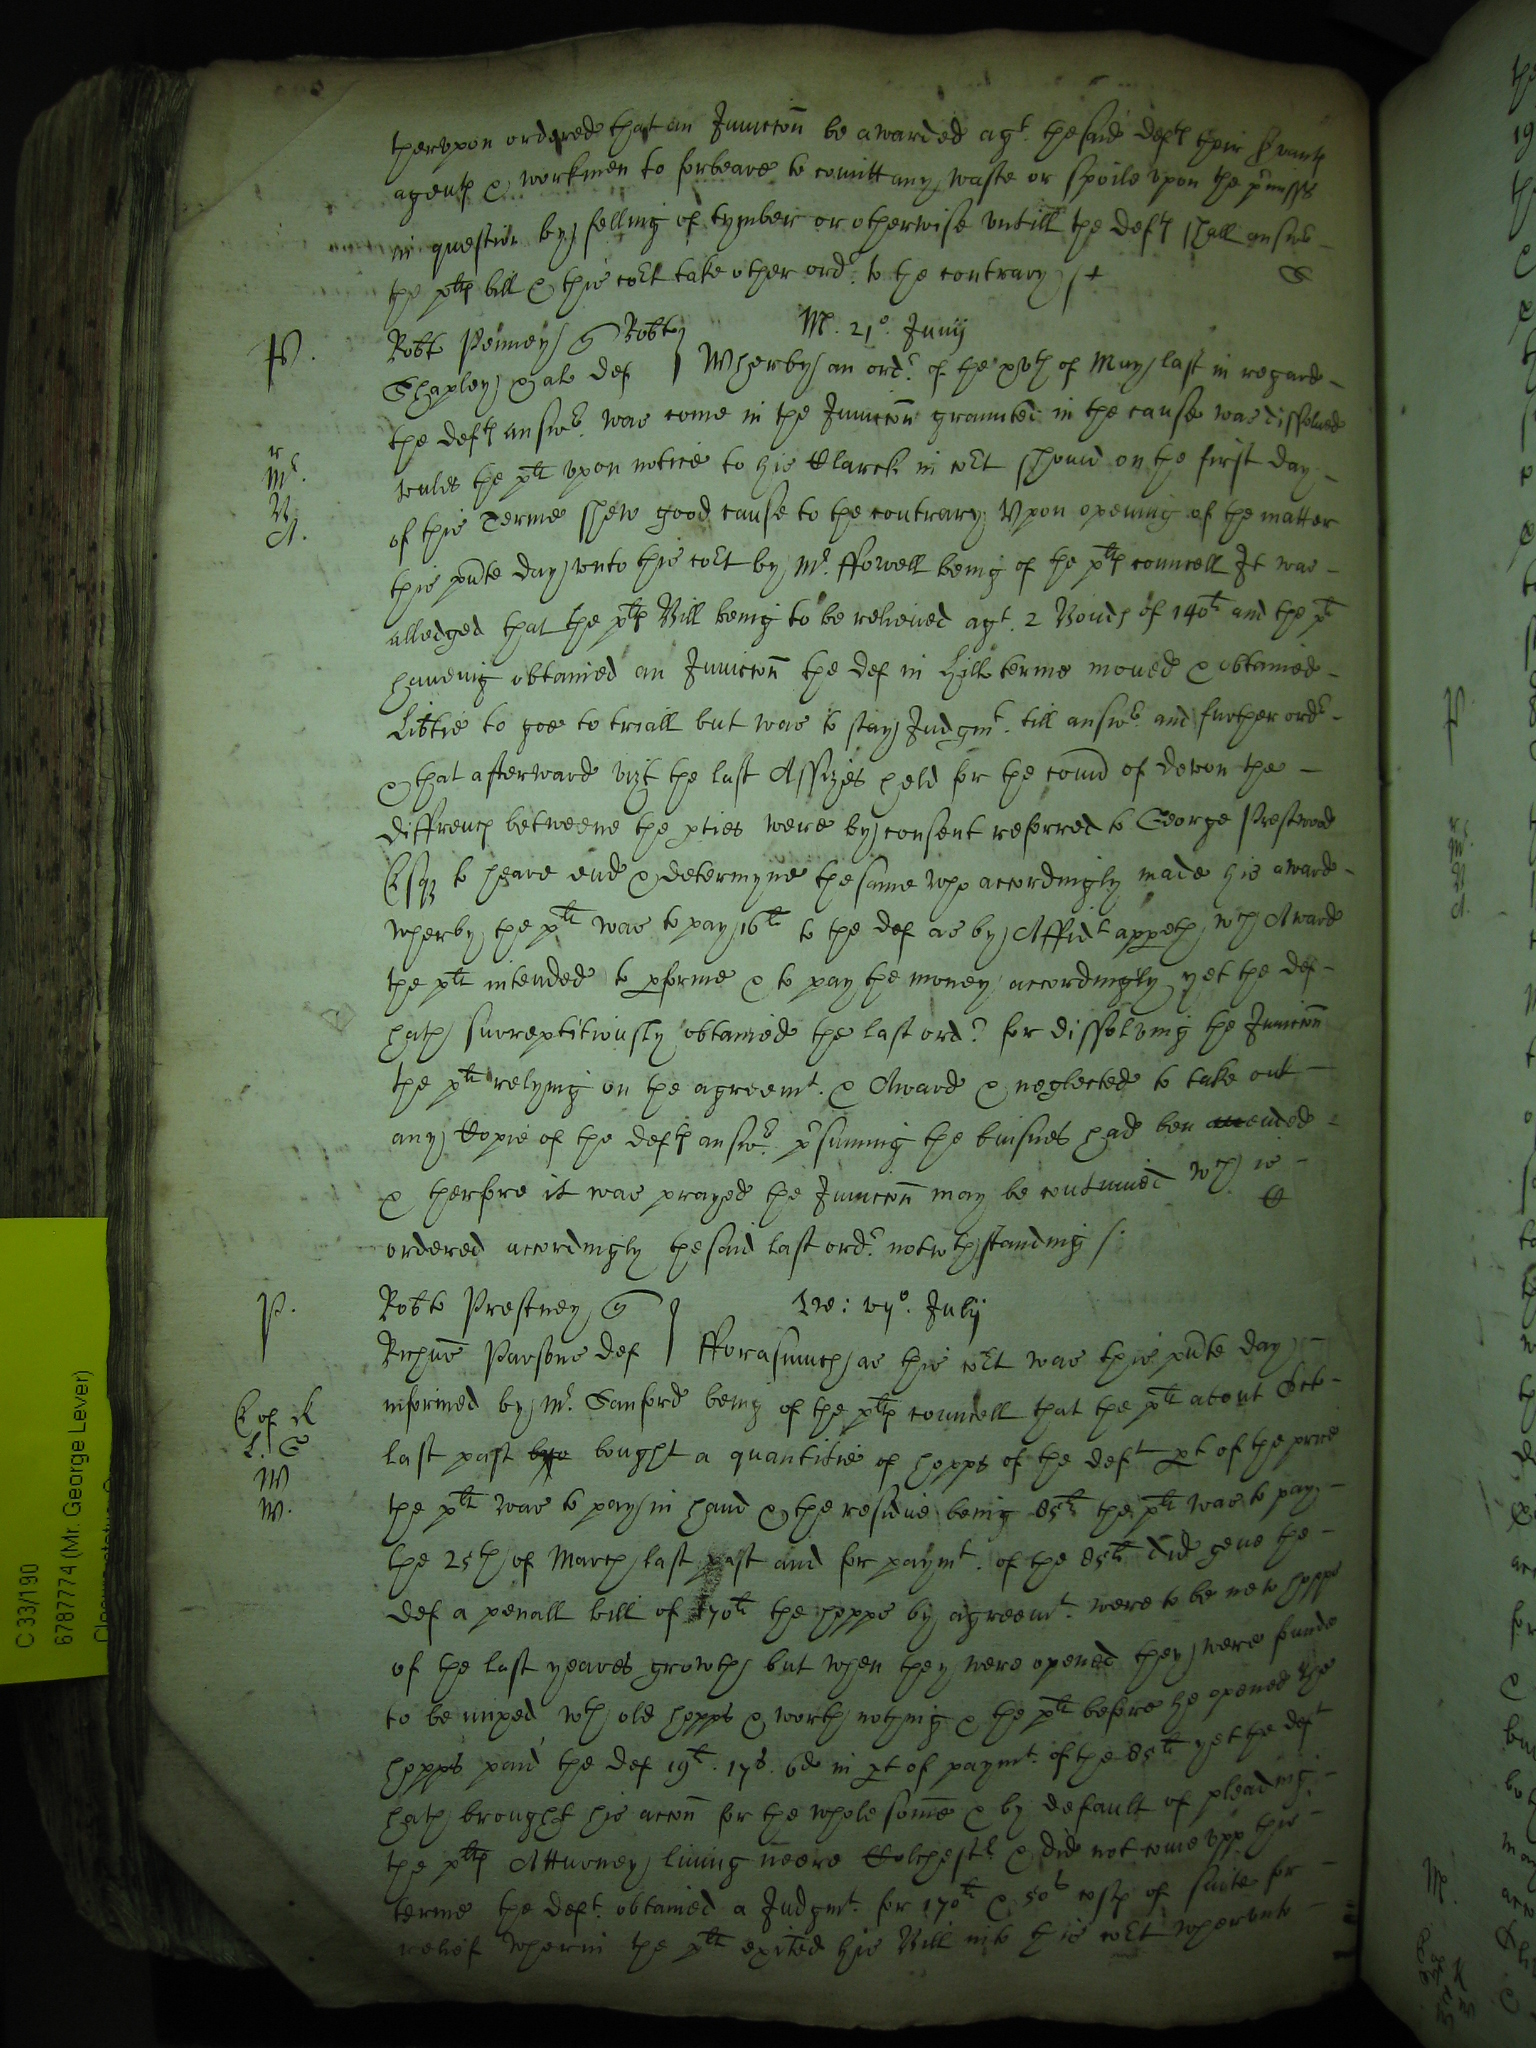 therupon ordered that an Iniuncc̃on be awarded agt. the said defts their servants
agents & workmen to forbeare to comitt any waste or spoile upon the p̃misses
in question by felling of tymber or otherwise untill the defts shall answer
the pltes bill & this cort take other ordr. to the contrary
P. Robte Penney q Robte M. 21o. Junij
Shapley & al def Wherby an ordr. of the xvth of May last in regard
the defts answer. was come in the Iniuncc̃on graunted in the cause was dissolved
r unles the plt upon notice to his Clarck in cort should on the first day
Mr. of this Terme shew good cause to the contrary Upon opening of the matter
V this p̃nte day unto this cort by Mr. ffowell being of the pltes councell It was
A. alledged that the pltes Bill being to be relieved agt. 2 Bonds of 140li and the plt
haveing obtained an Iniuncc̃on the def in Hill terme moved & obtained
Libtie to goe to triall but was to stay Judgmt. till answer and further ordr
& that afterward vizt the last Assizes held for the county of devon the
diffrencs betweene the pties were by consent referred to George Prestwood
Esqz to heare end & determyne the same who accordingly made his award
wherby the plt was to pay 16li to the def as by Affidt appeth wch Award
the plt intended to pforme & to pay the money accordingly yet the def
hath surreptitiously obtained the last ordr. for dissolving the Iniuncc̃on
the plt relying on the agreemt. & Award & neglected to take out
any Copie of the defts answer. p̃suming the buisnes had ben ended
& therfore it was prayed the Iniuncc̃on may be continued wch is
ordered accordingly the said last ordr. notwthstanding
P. Robte Prestney q July
Parsons def fforasmuch as this cort was this p̃nte day
informed by Mr. Sanford being of the pltes councell that the plt about Octo
last past bought a quantitie of hopps of the deft pt of the price
W the plt was to pay in hand & the residue being 85li the plt was to pay
W. the 25th of March last past and for paymt. of the 85li did geve the
def a penall bill of 170li the hopps by agreemt. were to be new hopps
of the last yeares growth but when they were opened they were founde
to be mixed wth old hopps & worth nothing & the plt before he opened the
hopps paid the def 19li. 17s. 6d in pt of paymt. of the 85li yet the deft
hath brought his acc̃on for the whole som̃e & by default of pleading
the pltes Atturney living neere Colchestr & did not come upp this
terme the deft. obtained a Judgmt. for 170li & 50s costs of suite for
relief wherin the plt exited his Bill into this cort wherunto
C 33/190
6787774 (Mr. George Lever)